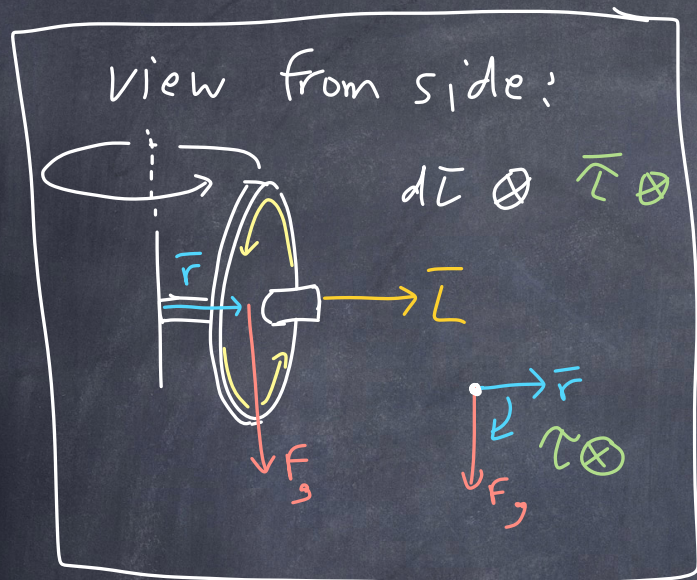 view from side:
dL̄ ⊗ τ̄ ⊗
r̄
L̄
r̄
τ ⊗
Fg
Fg